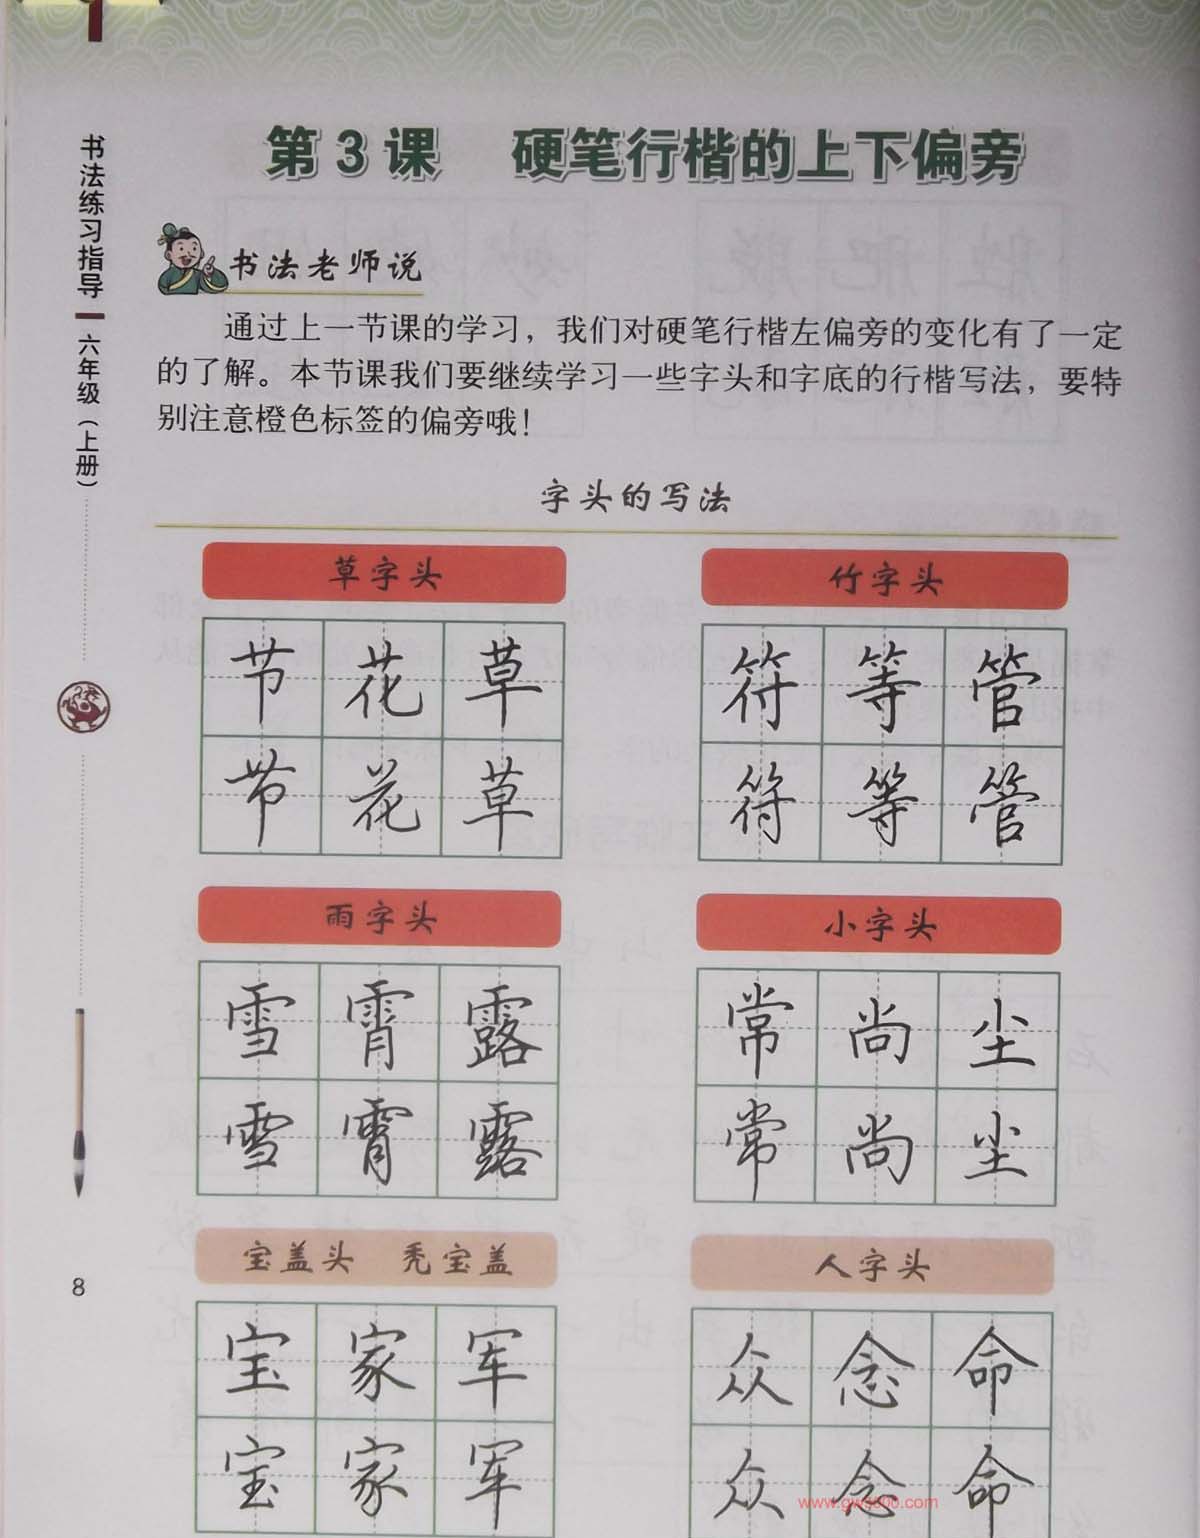 第3课 硬笔行楷的上下偏旁
书法老师说
通过上一节课的学习，我们对硬笔行楷左偏旁的变化有了一定
的了解。本节课我们要继续学习一些字头和字底的行楷写法，要特
别注意橙色标签的偏旁哦！
字头的写法
草字头
节花草
节花草
竹字头
符等管
符等管
雨字头
雪霄露
雪霄露
小字头
常尚尘
常尚尘
宝盖头 秃宝盖
宝家军
宝家军
人字头
众念命
众念命
书法练习指导
六年级（上册）
8